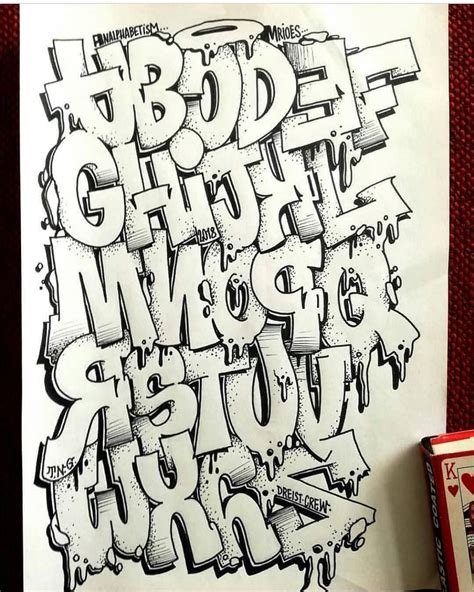 ANALPHABETISM... MRIOES...
ABCDEF
GHIJKL
2018
MNOPQ
RSTUV
T.N.G.
WXYZ
DREIST-CREW.
K